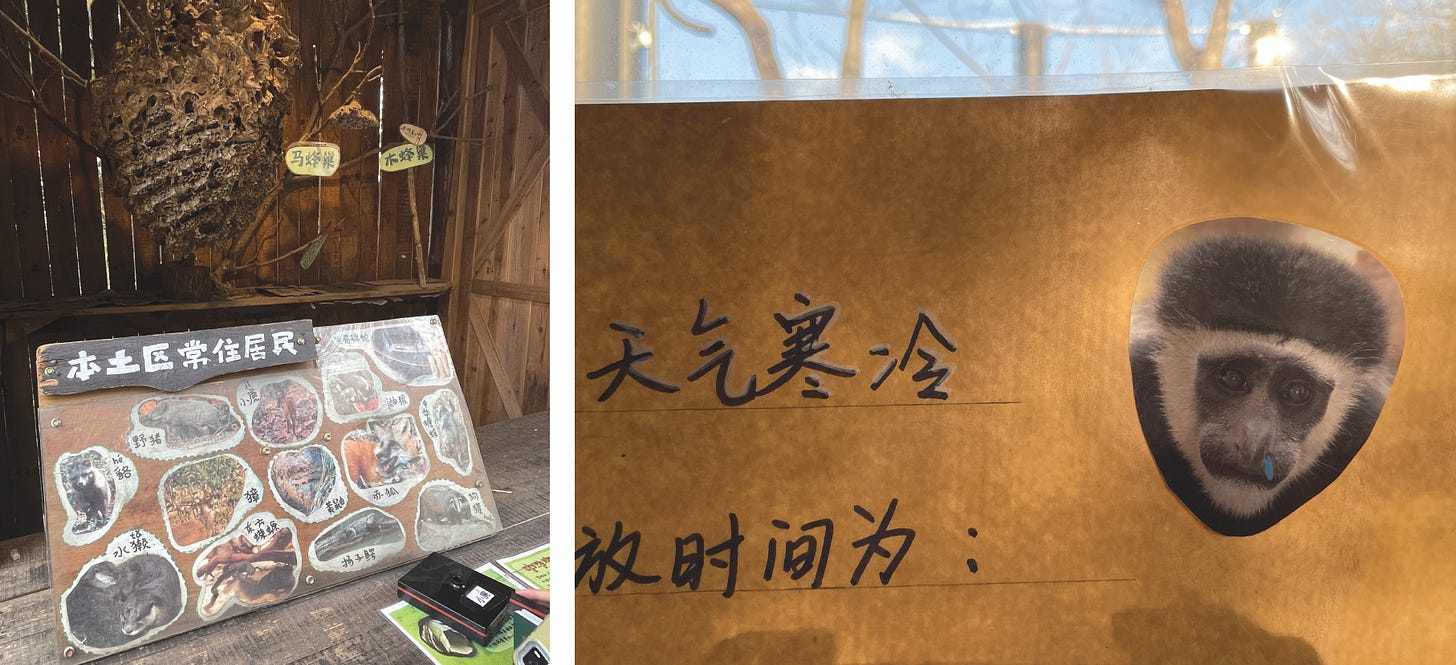 马蜂巢
木蜂巢
本土区常住居民
野猪
小麂
hé
貉
獐
黄鼬
赤狐
狗獾
水獭
tǎ
东方
蝾螈
扬子鳄
天气寒冷
放时间为：